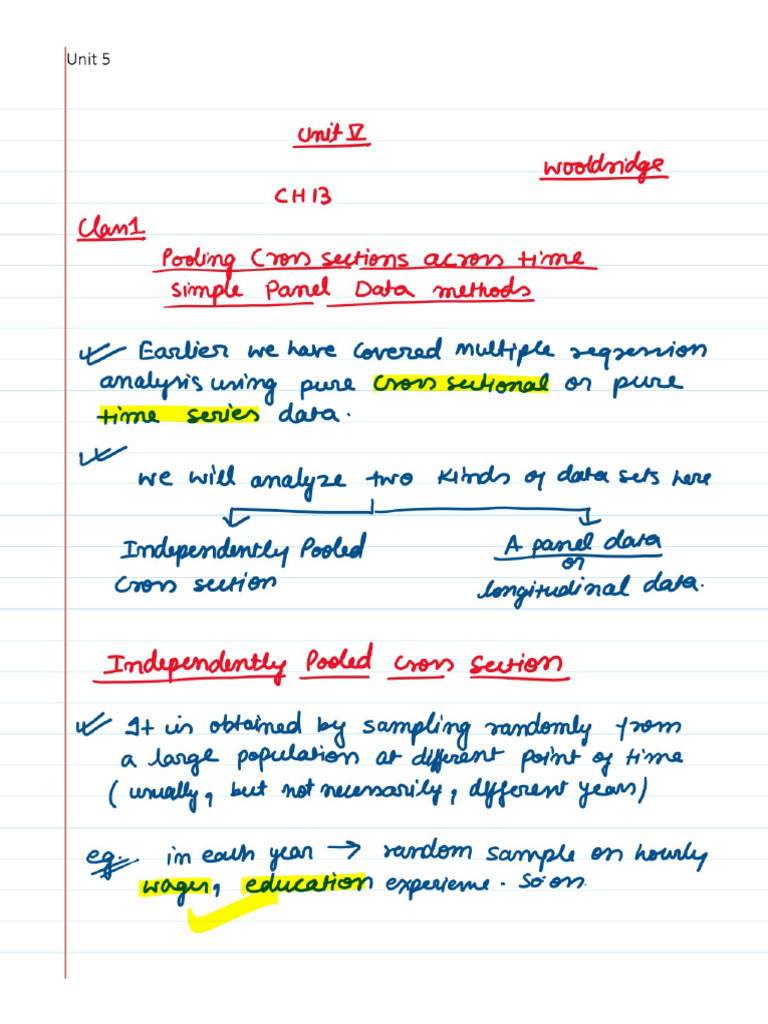 Unit 5
Unit V
Wooldridge
CH 13
Class 1
Pooling Cross sections across time
Simple Panel Data methods
Earlier we have covered multiple regression
analysis using pure cross sectional or pure
time series data.
we will analyze two kinds of data sets here
Independently Pooled
Cross section
A panel data
or
longitudinal data.
Independently Pooled Cross Section
It is obtained by sampling randomly from
a large population at different point of time
(usually, but not necessarily, different years)
eg. in each year → random sample on hourly
wages, education experience. So on.